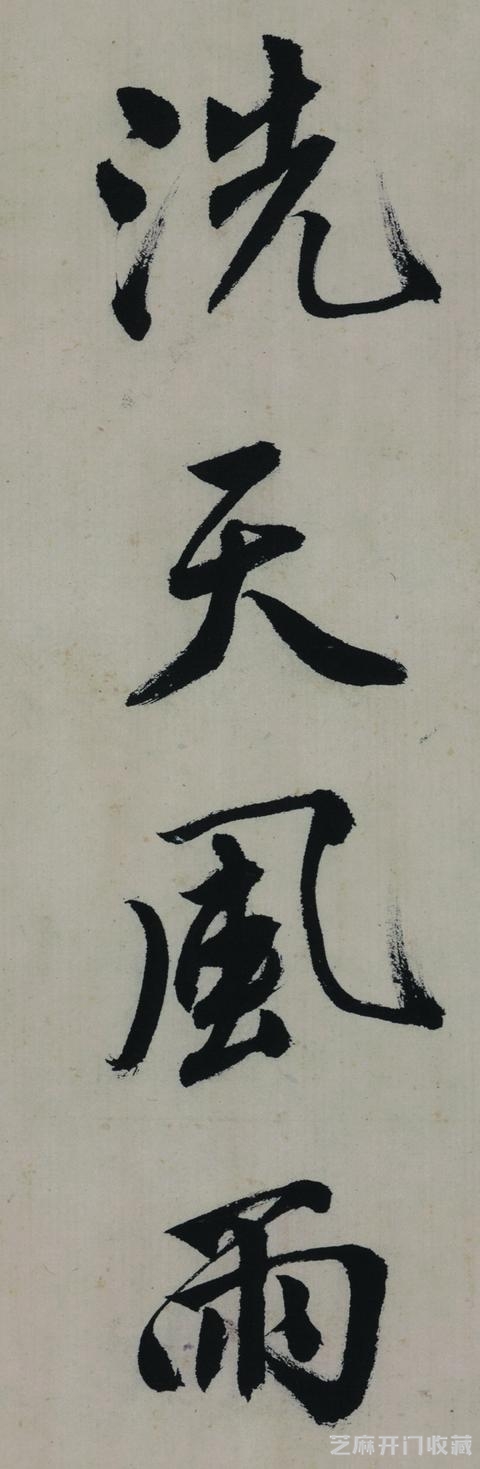 洗天風雨
芝麻开门收藏